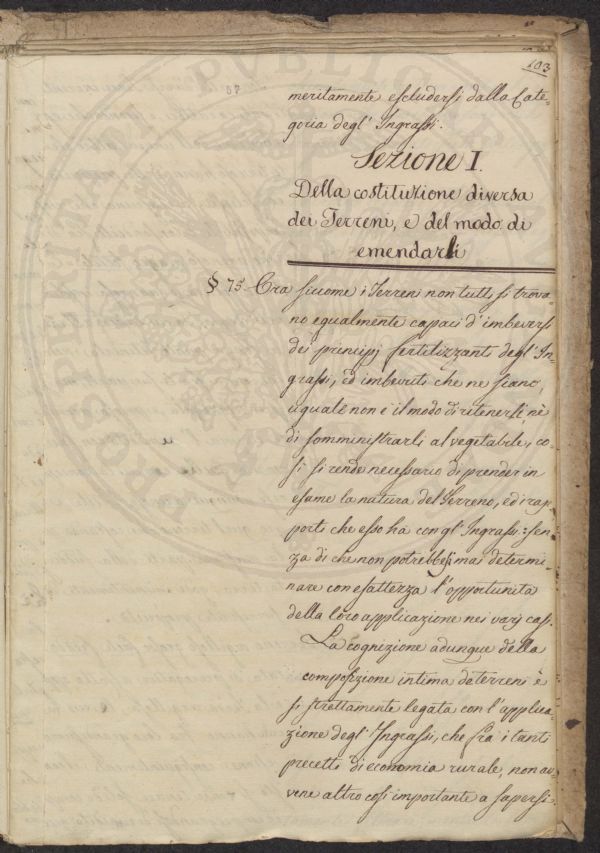 103
57
meritamente escludersi dalla Cate-
goria degl' Ingrassi.
Sezione I.
Della costituzione diversa
dei Terreni, e del modo di
emendarli
§ 75 Ora siccome i Terreni non tutti si trova-
no egualmente capaci d'imbeversi
dei principj fertilizzanti degl' In-
grassi, ed imbevuti che ne siano,
uguale non è il modo di ritenerli, nè
di somministrarli al vegetabile, co-
sì si rende necessario di prender in
esame la natura del Terreno, ed i rap-
porti che esso ha con gl' Ingrassi: sen-
za di che non potrebbesi mai determi-
nare con esattezza l'opportunità
della loro applicazione nei varj casi.
La cognizione adunque della
composizione intima de terreni è
sì strettamente legata con l'applica-
zione degl' Ingrassi, che frà i tanti
precetti di economia rurale, non av-
vene altro così importante a sapersi.
PUBLICAE
PROSPERITATI